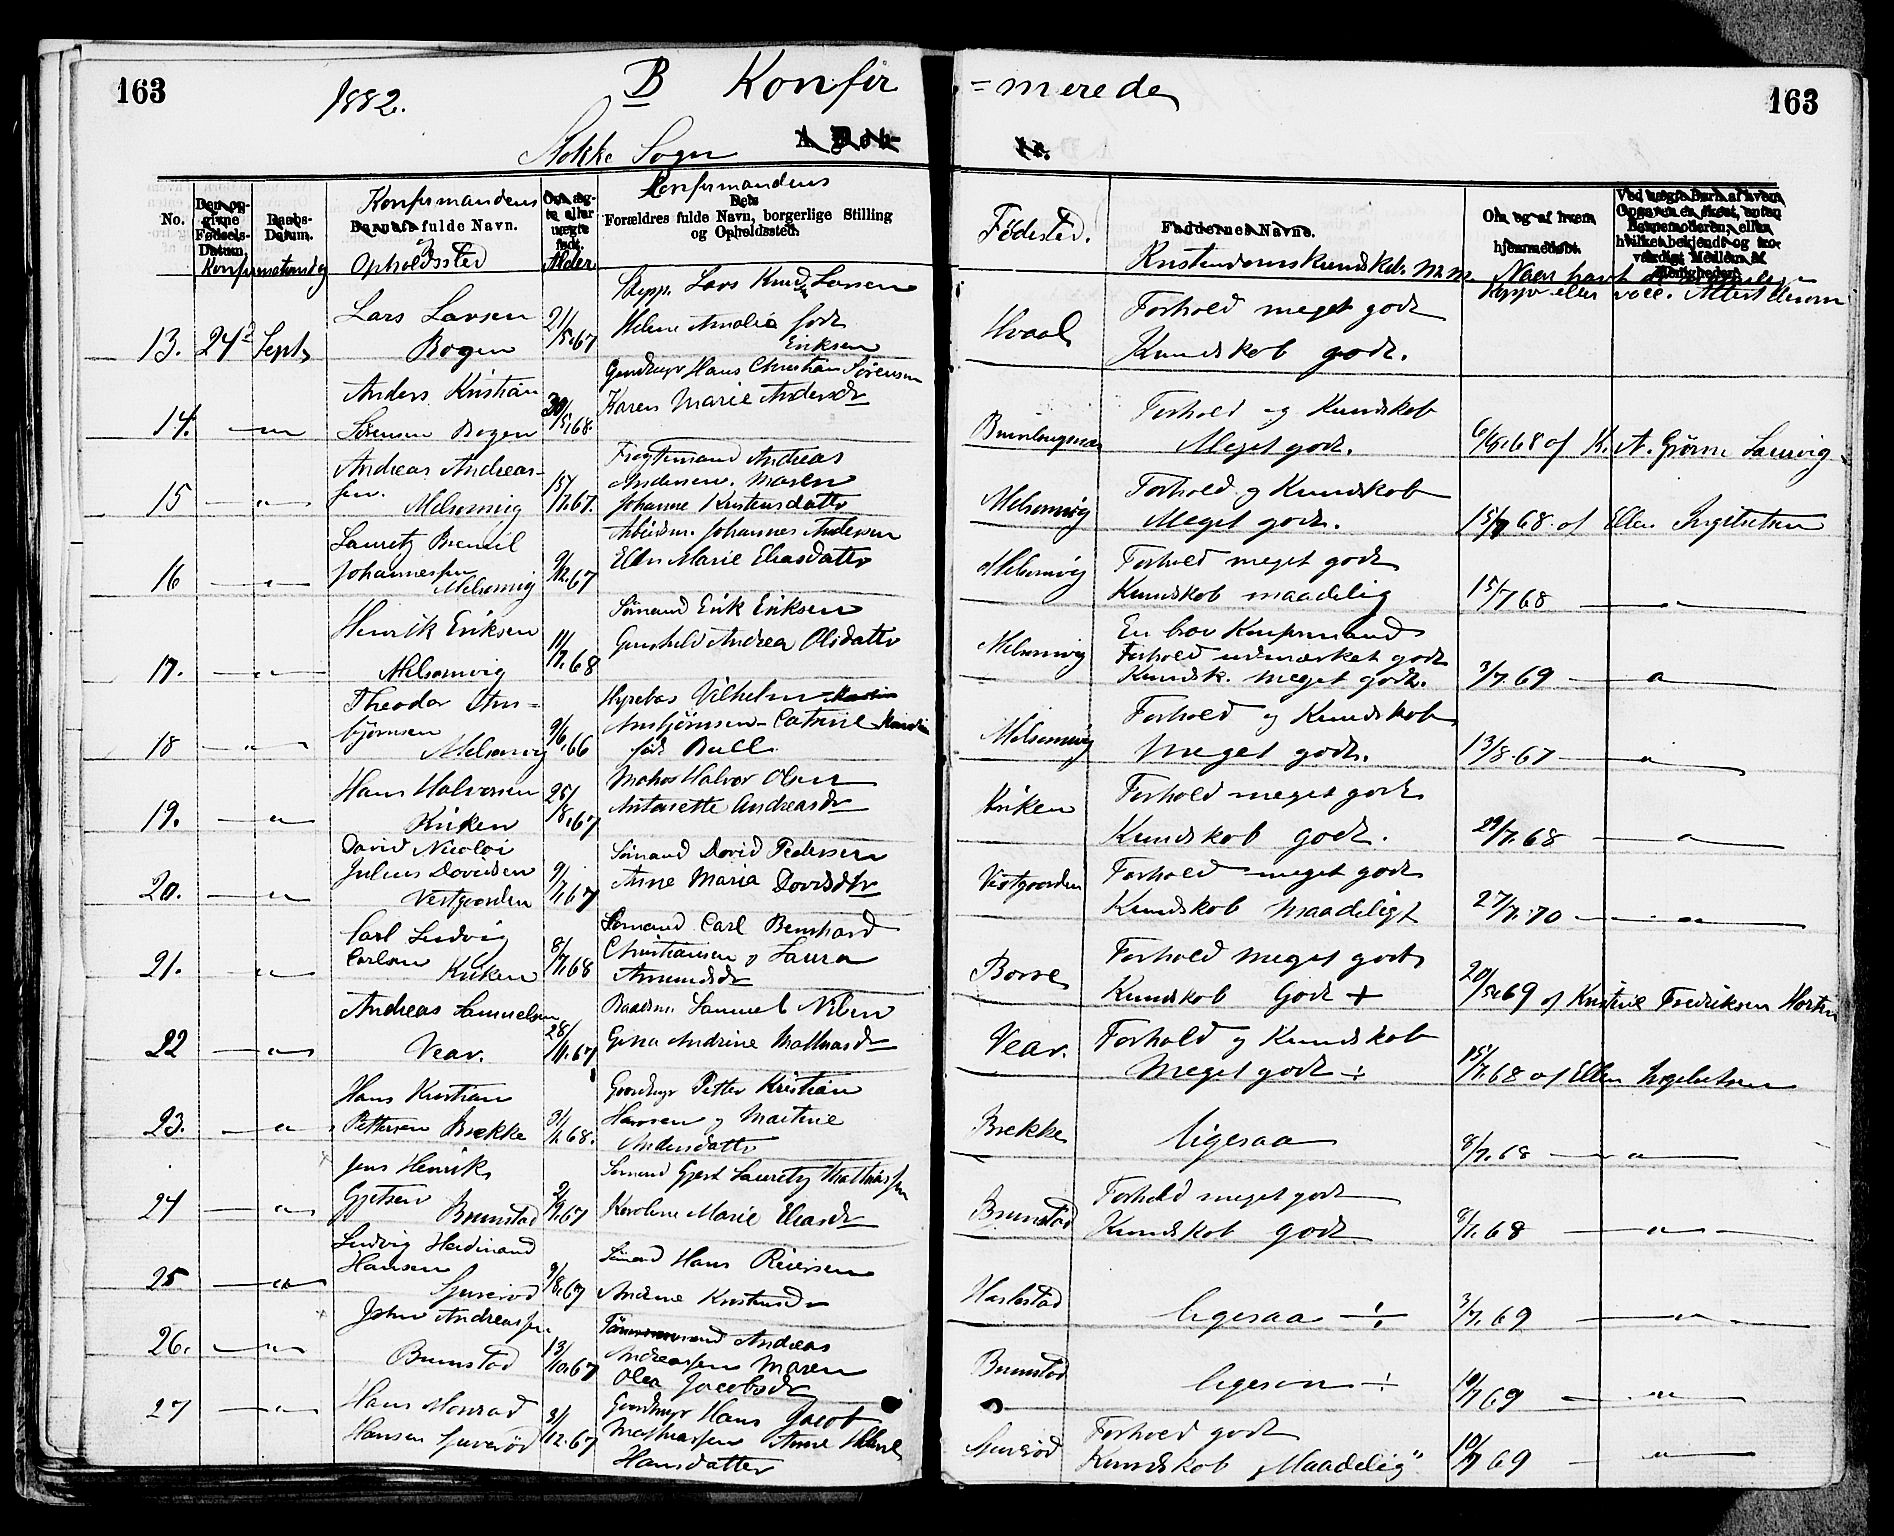 163
1882.
B Konfir
=merede
163
Stokke Sogn
A Døb-
te.
No.
Den op-
givne
Fødsels-
Datum.
Daabs-
Datum.
Konfirmationsdag
Konfirmandens
Barnets fulde Navn.
Opholdssted
Om æg-
te eller
uægte
født.
Alder
Konfirmandens
Dets
Forældres fulde Navn, borgerlige Stilling
og Opholdssted.
Fødested.
Faddernes Navne.
Kristendomskundskab m.m.
Om og af hvem
hjemmedøbt.
Ved uægte Barn af hvem
Opgaven er skeet, enten
Barnemoderen, eller
hvilket bekjendt og tro-
værdigt Medlem af
Menigheden.
Naar havt
Kopper eller vacc.
13. 24de Septb
Lars Larsen
Bogen
21/5.67
Skipp. Lars Knud Larsen
Helene Amalia født
Eriksen
Hvaal
Forhold meget godt
Kundskab godt.
14. — " —
Anders Kristian
Sørensen Bogen
30/5.68.
Gaardbrgr Hans Christian Sørensen
Karen Marie Andersdr
Forhold og Kundskab
Meget godt.
6/6.68 af K. A. Grønn Laurvig
15 — " —
Andreas Andreas-
sen.
Melsomvig
15/7.67.
Fragtemand Andreas
Andersen. Maren
Johanne Kristensdatter
Melsomvig
Forhold og Kundskab
Meget godt.
15/7 68. af Ellen Ingebretsen
16 — " —
Lauretz
Johannessen
Melsomvig
9/12.67
Arbeidsm. Johannes Andersen
Ellen Marie Eliasdatter
Melsomvig
Forhold meget godt
Kundskab maadelig
15/7 68 — " —
17. — " —
Henrik Eriksen
Melsomvig
11/7.68
Sømand Erik Eriksen
Gunhild Andrea Olsdatter
Melsomvig
En brav Konfirmand
Forhold udmærket godt
Kundsk. meget godt.
3/7.69 — " —
18 — " —
Theodor Ans-
bjørnsen
Melsomvig
9/6.66
Vilhelm
Ansbjørnsen – Catrine
født Bull.
Melsomvig
Forhold og Kundskab
Meget godt.
13/8 67 — " —
19. — " —
Hans Halvorsen
Kriken
25/8.67
Halvor Olsen
Antonette Andreasdr
Kriken
Forhold meget godt
Kundskab godt.
29/7.68 — " —
20. — " —
David Nicolai
Julius Davidsen
Vestgaarden
9/7.67
Sømand David Pedersen
Anne Maria Davidsdtr
Vestgaarden
Forhold meget godt
Kundskab Maadeligt
27/7.70 — " —
21. — " —
Carl Ludvig
Carlsen Kriken
8/7.68
Sømand Carl Bernhard
Christiansen og Laura
Amundsdr
Borre
Forhold Meget godt
Kundskab Godt +
20/5 69 af Kristine Fredriksen Horten
22 — " —
Andreas Samuelsen
Vear.
28/11.67
Baadsm. Samuel Nilsen
Gina Andrine Mathiasdr
Vear.
Forhold og Kundskab
Meget godt ÷
15/7.68 af Ellen Ingebretsen
23. — " —
Hans Kristian
Pettersen Brekke
3/1.68.
Gaardbrgr Petter Kristian
Hansen og Martine
Andersdatter
Brekke
ligesaa
8/7.68 — " —
24 — " —
Jens Henrik
Gjetsen Brunstad
Sømand Gjert Lauretz Mathiassen
Karoline Marie Eliasdr
Brunstad
Forhold meget godt
Kundskab godt
8/7.68 — " —
25 — " —
Ludvig Ferdinand
Hansen
9/8.67
Sømand Hans Reiersen
Andrine Kristensdr
Haslestad
ligesaa ÷
3/7.69 — " —
26. — " —
John Andreassen
Brunstad
13/10.67
Andreas
Andreassen Maren
Olea Jacobsdr
Brunstad
ligesaa ÷
10/7 69 — " —
27 — " —
Hans Monrad
Hansen
3/12.67
Gaardbrgr Hans Jacob
Mathiassen Anne
Hansdatter
Forhold godt
Kundskab "Maadelig"
10/7 69 — " —